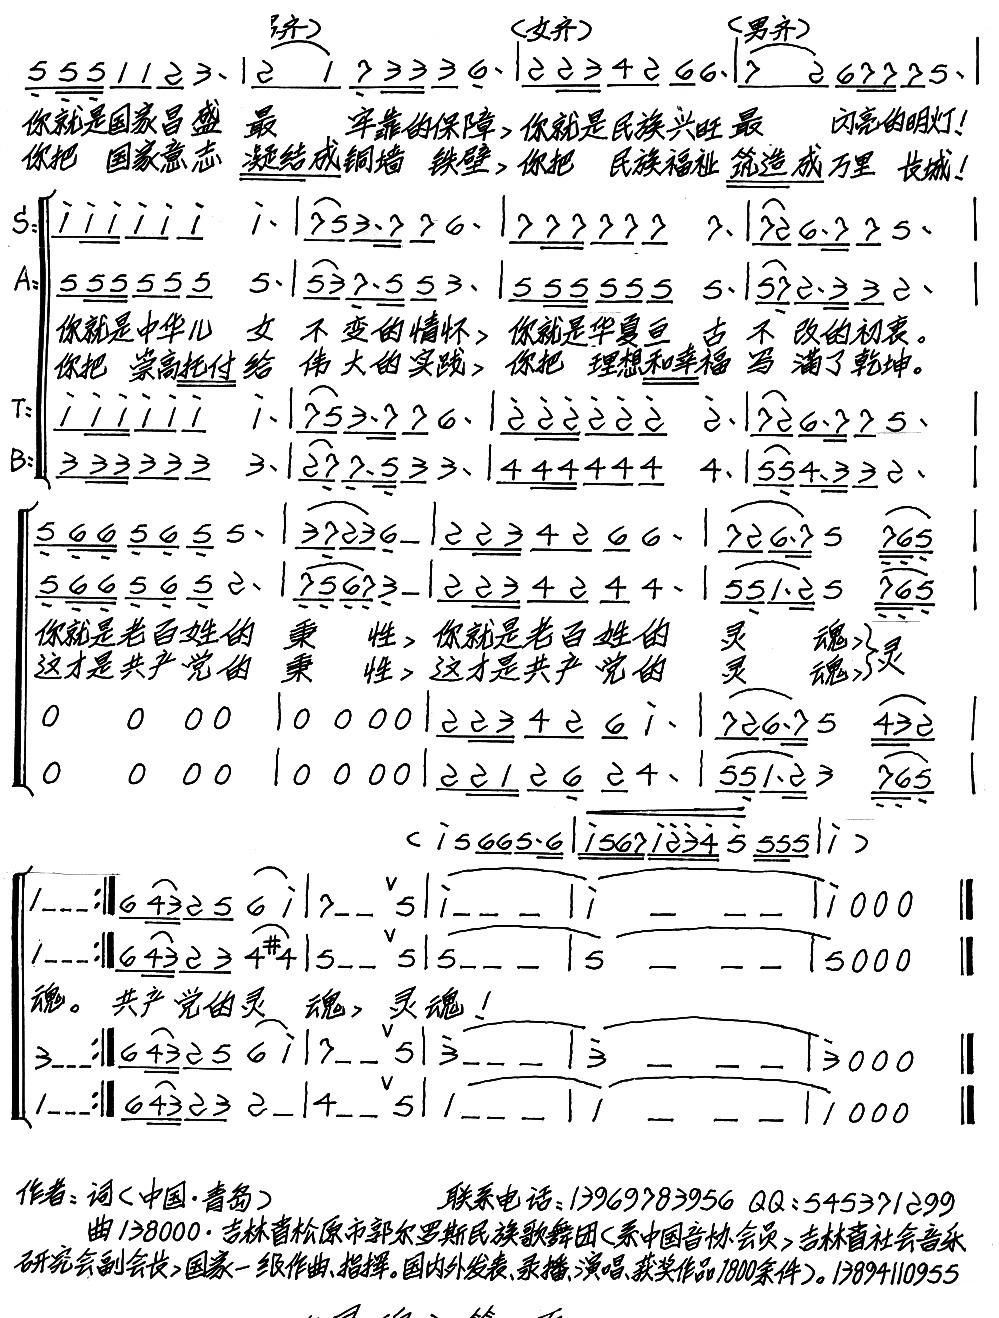 齐） （女齐） （男齐）
5 5 5 1 1 2 3、| 2 1 7 3 3 3 3 6、| 2 2 3 4 2 6 6、| 7 2 6 7 7 7 5、|
你就是国家昌盛 最 牢靠的保障，你就是民族兴旺最 闪亮的明灯！
你把 国家意志 凝结成铜墙 铁壁，你把 民族福祉 筑造成万里 长城！
S: i i i i i i i、| 7 5 3、7 7 7 6、| 7 7 7 7 7 7 7、| 7 2 6、7 7 5、|
A: 5 5 5 5 5 5 5、| 5 3 7、5 5 3、| 5 5 5 5 5 5 5、| 5 7 2、3 3 2、|
你就是中华儿 女 不 变的情怀，你就是华夏亘 古 不 改的初衷。
你把 崇高托付给 伟 大的实践，你把 理想和幸福 写 满了乾坤。
T: i i i i i i i、| 7 5 3、7 7 6、| 2 2 2 2 2 2 2、| 7 2 6、7 7 5、|
B: 3 3 3 3 3 3 3、| 2 7 7、5 3 3、| 4 4 4 4 4 4 4、| 5 5 4、3 3 2、|
5 6 6 5 6 5 5、| 3 7 2 3 6 — | 2 2 3 4 2 6 6、| 7 2 6、7 5 7 6 5 |
5 6 6 5 6 5 2、| 7 5 6 7 3 — | 2 2 3 4 2 4 4、| 5 5 1、2 5 7 6 5 |
你就是老百姓的 秉 性，你就是老百姓的 灵 魂，} 灵
这才是共产党的 秉 性，这才是共产党的 灵 魂，
0 0 0 0 | 0 0 0 0 | 2 2 3 4 2 6 i、| 7 2 6、7 5 4 3 2 |
0 0 0 0 | 0 0 0 0 | 2 2 1 2 6 2 4、| 5 5 1、2 3 7 6 5 |
（ i 5 6 6 5、6 | i 5 6 7 i 2 3 4 5 5 5 5 | i ）
1 — — — :‖ 6 4 3 2 5 6 i | 7 — — ∨ 5 | i — — — | i — — — | i 0 0 0 ‖
1 — — — :‖ 6 4 3 2 3 4 #4 | 5 — — ∨ 5 | 5 — — — | 5 — — — | 5 0 0 0 ‖
魂。 共产党的灵 魂，灵魂！
3 — — — :‖ 6 4 3 2 5 6 i | 7 — — ∨ 5 | 3 — — — | 3 — — — | 3 0 0 0 ‖
1 — — — :‖ 6 4 3 2 3 2 — | 4 — — ∨ 5 | 1 — — — | 1 — — — | 1 0 0 0 ‖
作者：词（中国·青岛） 联系电话：13969783956 QQ：545371299
曲138000·吉林省松原市郭尔罗斯民族歌舞团（系中国音协会员，吉林省社会音乐
研究会副会长，国家一级作曲、指挥。国内外发表、录播、演唱、获奖作品1800余件）。13894110955